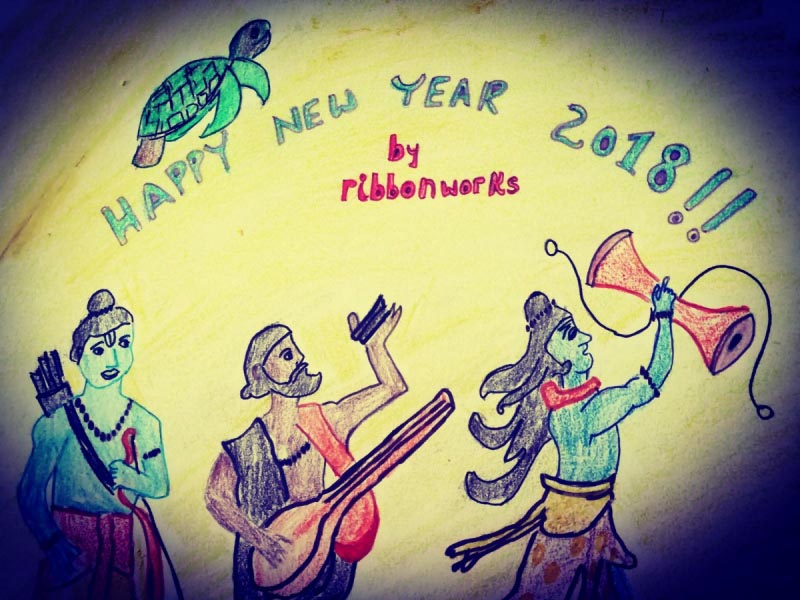 HAPPY NEW YEAR 2018!!
by
ribbonworks